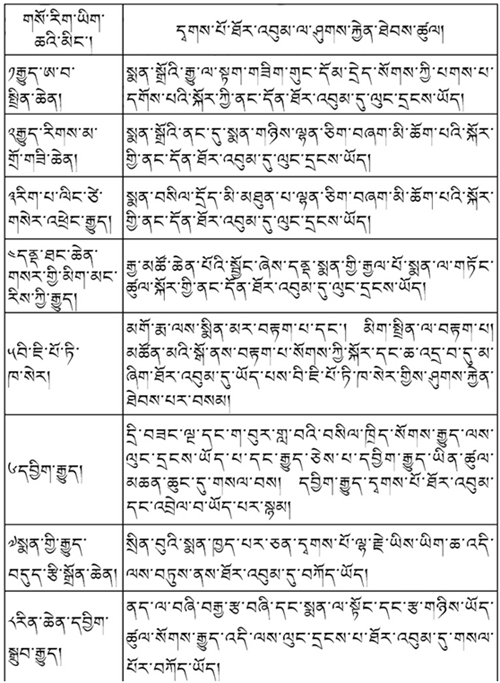 གསོ་རིག་ཡིག་
ཆའི་མིང་།
དྭགས་པོ་ཐོར་འབུམ་ལ་ཤུགས་རྐྱེན་ཐེབས་ཚུལ།
༡རྒྱུད་ཨ་བ་
སྤྲིན་ཆེན།
སྨན་སྒྲོའི་རྒྱུ་ལ་སྟག་གཟིག་གུང་དོམ་དྲེད་སོགས་ཀྱི་པགས་པ་
དགོས་པའི་སྐོར་ཀྱི་ནང་དོན་ཐོར་འབུམ་དུ་ལུང་དྲངས་ཡོད།
༢རྒྱུད་རིགས་མ་
གྲོ་གཟི་ཆེན།
སྨན་སྒྲོའི་ནང་དུ་སྨན་གཉིས་ལྷན་ཅིག་བཞག་མི་ཆོག་པའི་སྐོར་
གྱི་ནང་དོན་ཐོར་འབུམ་དུ་ལུང་དྲངས་ཡོད།
༣རིག་པ་ལིང་ཙེ་
གསེར་འཕྲེང་རྒྱུད།
སྨན་བསིལ་དྲོད་མི་མཐུན་པ་ལྷན་ཅིག་བཞག་མི་ཆོག་པའི་སྐོར་
གྱི་ནང་དོན་ཐོར་འབུམ་དུ་ལུང་དྲངས་ཡོད།
༤དནྡ་ཐང་ཆེན་
གསར་གྱི་མིག་མང་
རིས་ཀྱི་རྒྱུད།
རྒྱ་མཚོ་ཆེན་པོའི་སྦྱོང་ཞེས་དནྡ་སྨན་གྱི་རྒྱལ་པོ་སྨན་ལ་གཏོང་
ཚུལ་སྐོར་གྱི་ནང་དོན་ཐོར་འབུམ་དུ་ལུང་དྲངས་ཡོད།
༥བི་ཇི་པོ་ཏི་
ཁ་སེར།
མགོ་རྨ་ལས་སྨིན་མར་བརྟག་པ་དང་། མིག་སྤྲིན་ལ་བརྟག་པ།
མཚོན་མའི་སྒོ་ནས་བརྟག་པ་སོགས་ཀྱི་སྐོར་དང་ཆ་འདྲ་བ་དུ་མ་
ཞིག་ཐོར་འབུམ་དུ་ཡོད་པས་བི་ཇི་པོ་ཏི་ཁ་སེར་གྱིས་ཤུགས་རྐྱེན་
ཐེབས་པར་བསམ།
༦དབྱིག་རྒྱུད།
དྲི་བཟང་ལྔ་དང་ག་བུར་གླ་བའི་བསིལ་ཁྲིད་སོགས་རྒྱུད་ལས་
ལུང་དྲངས་ཡོད་པ་དང་རྒྱུད་ཅེས་པ་དབྱིག་རྒྱུད་ཡིན་ཚུལ་
མཆན་ཆུང་དུ་གསལ་བས། དབྱིག་རྒྱུད་དྭགས་པོ་ཐོར་འབུམ་
དང་འབྲེལ་བ་ཡོད་པར་སྙམ།
༧སྨན་གྱི་རྒྱུད་
བདུད་རྩི་སྒྲོན་ཆེན།
སྲིན་བུའི་སྨན་ཁྱད་པར་ཅན་དྭགས་པོ་ལྷ་རྗེ་ཡིས་ཡིག་ཆ་འདི་
ལས་བཏུས་ནས་ཐོར་འབུམ་དུ་བཀོད་ཡོད།
༨རིན་ཆེན་དབྱིག་
སྒྲུབ་རྒྱུད།
ནད་ལ་བཞི་བརྒྱ་རྩ་བཞི་དང་སྨན་ལ་སྟོང་དང་རྩ་གཉིས་ཡོད་
ཚུལ་སོགས་རྒྱུད་འདི་ལས་ལུང་དྲངས་པ་ཐོར་འབུམ་དུ་གསལ་
པོར་བཀོད་ཡོད།